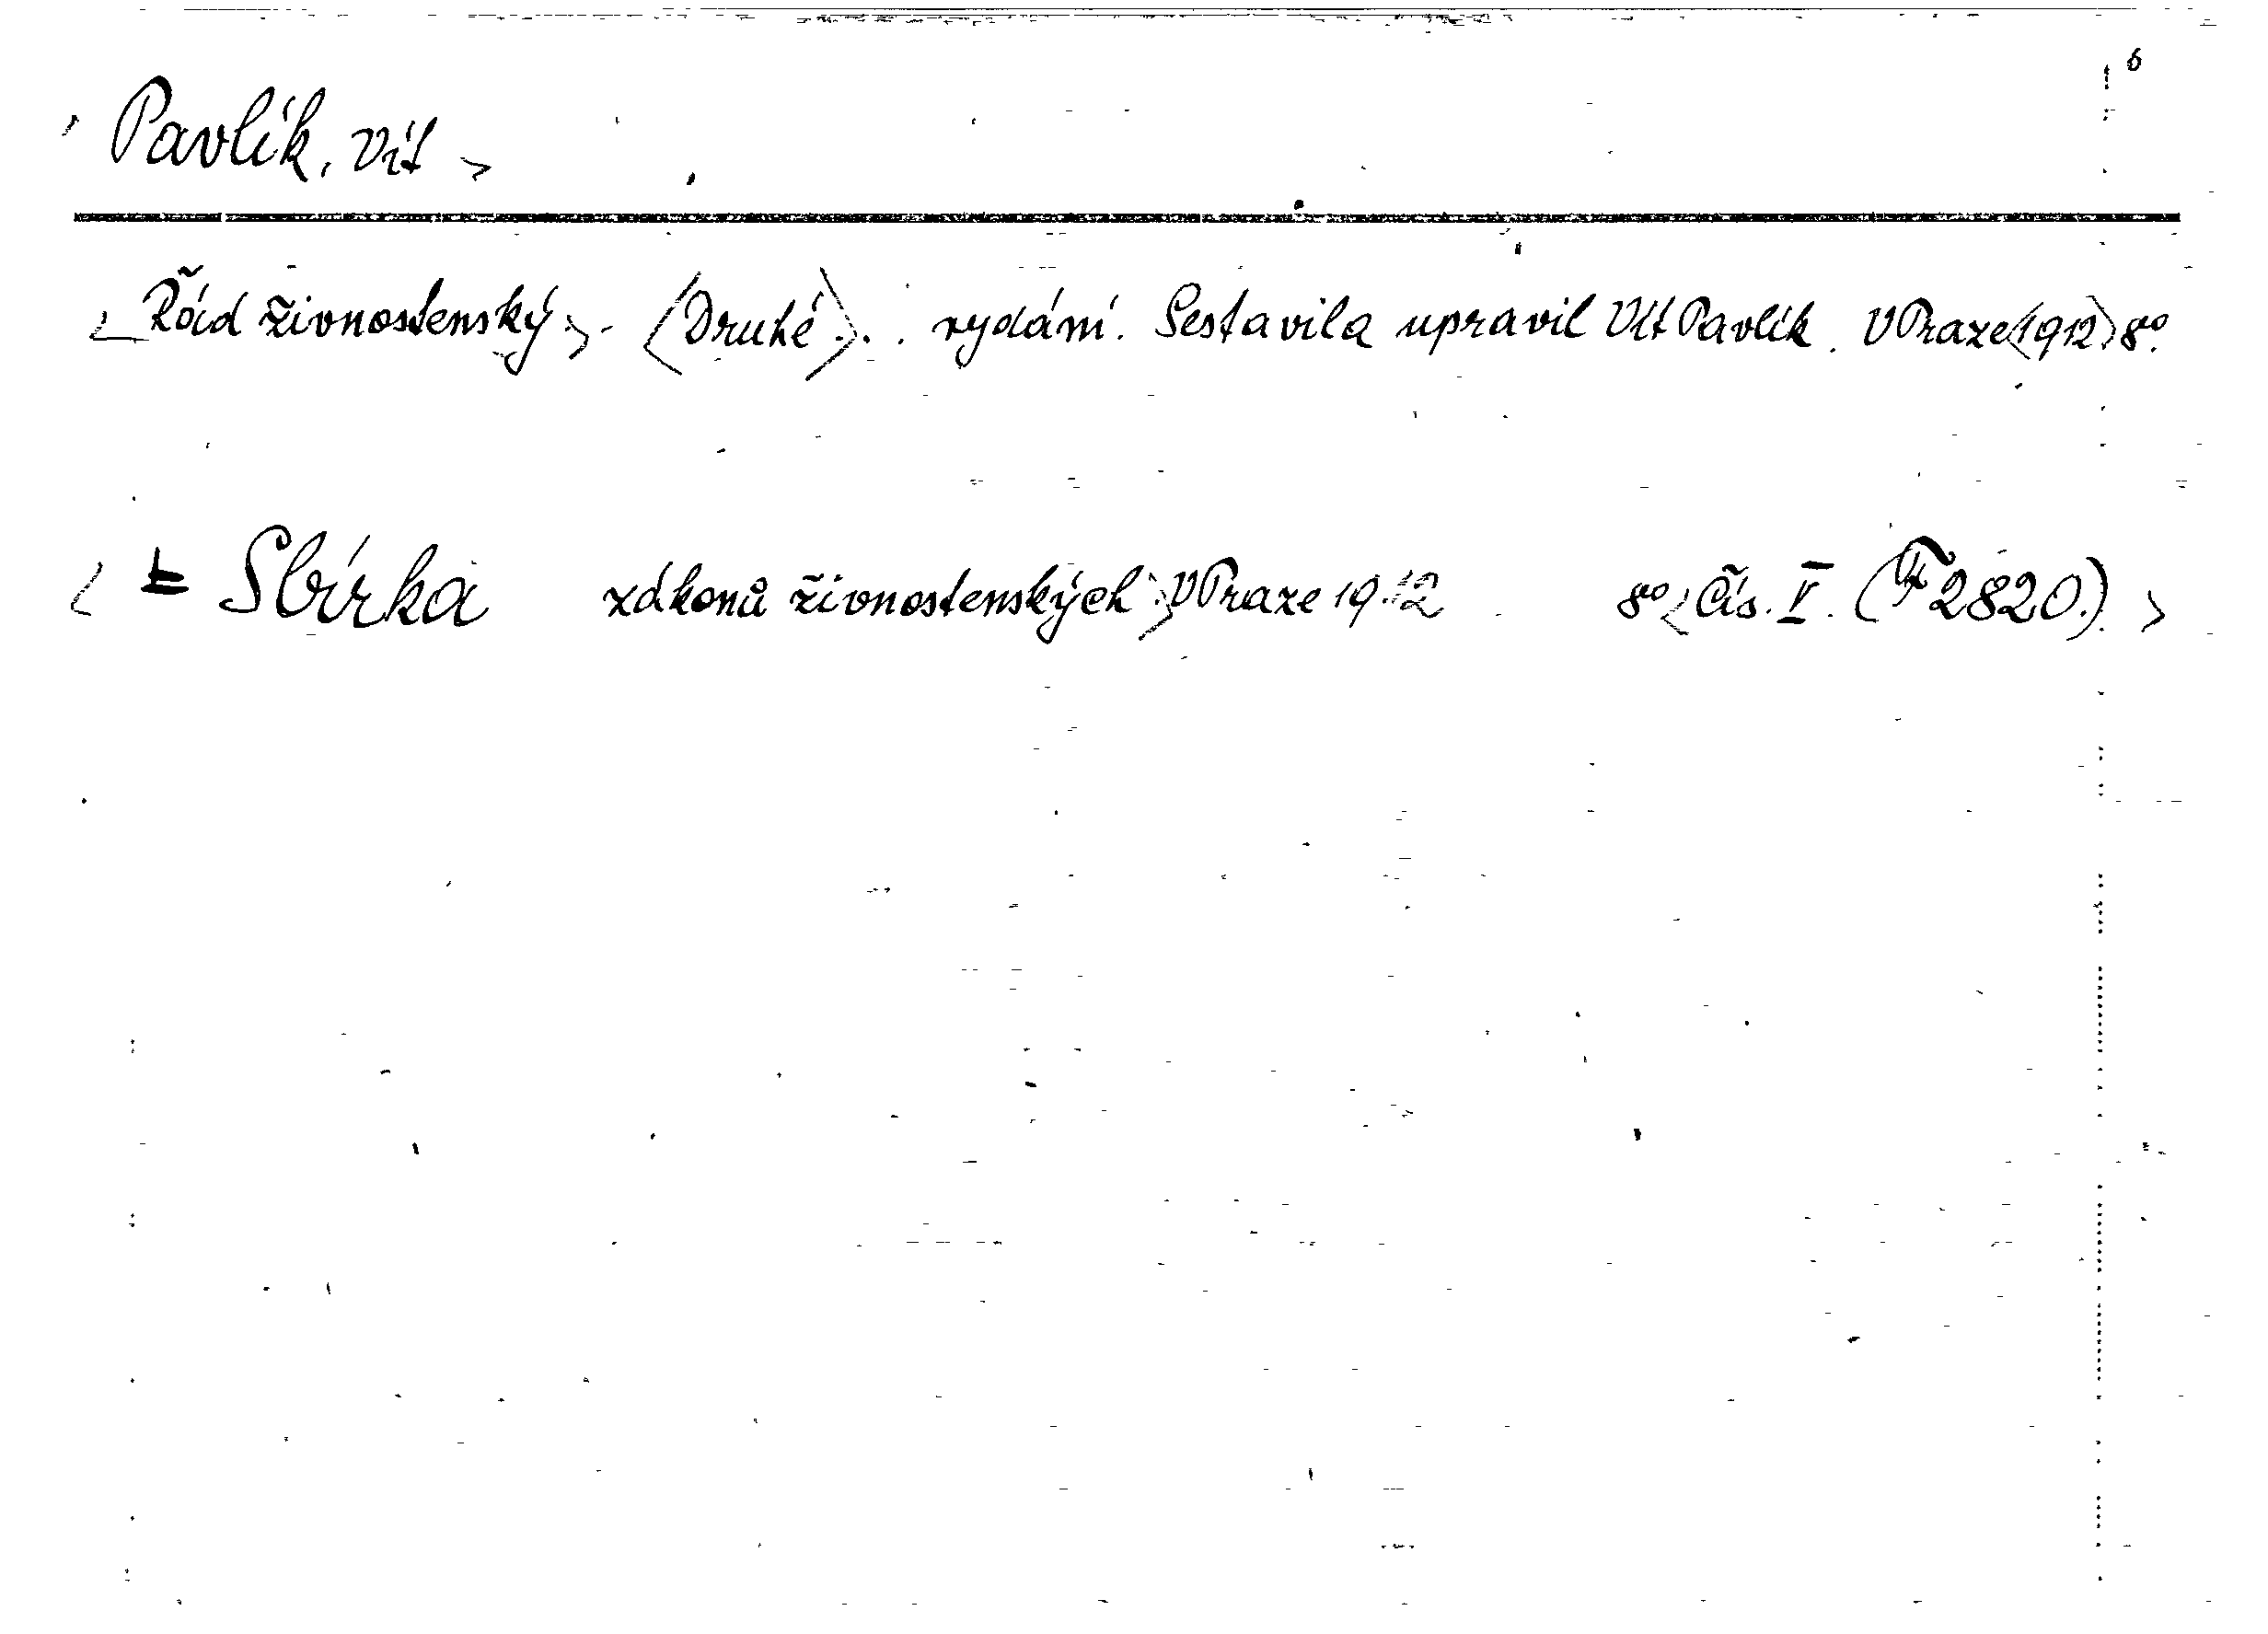 6
Pavlík, Vít >
< Řád živnostenský > . < Druhé > . . vydání. Sestavil a upravil Vít Pavlík. V Praze <1912> 8º.
< = Sbírka zákonů živnostenských > V Praze 1912 8º < Čís. V. ( 2820.) >